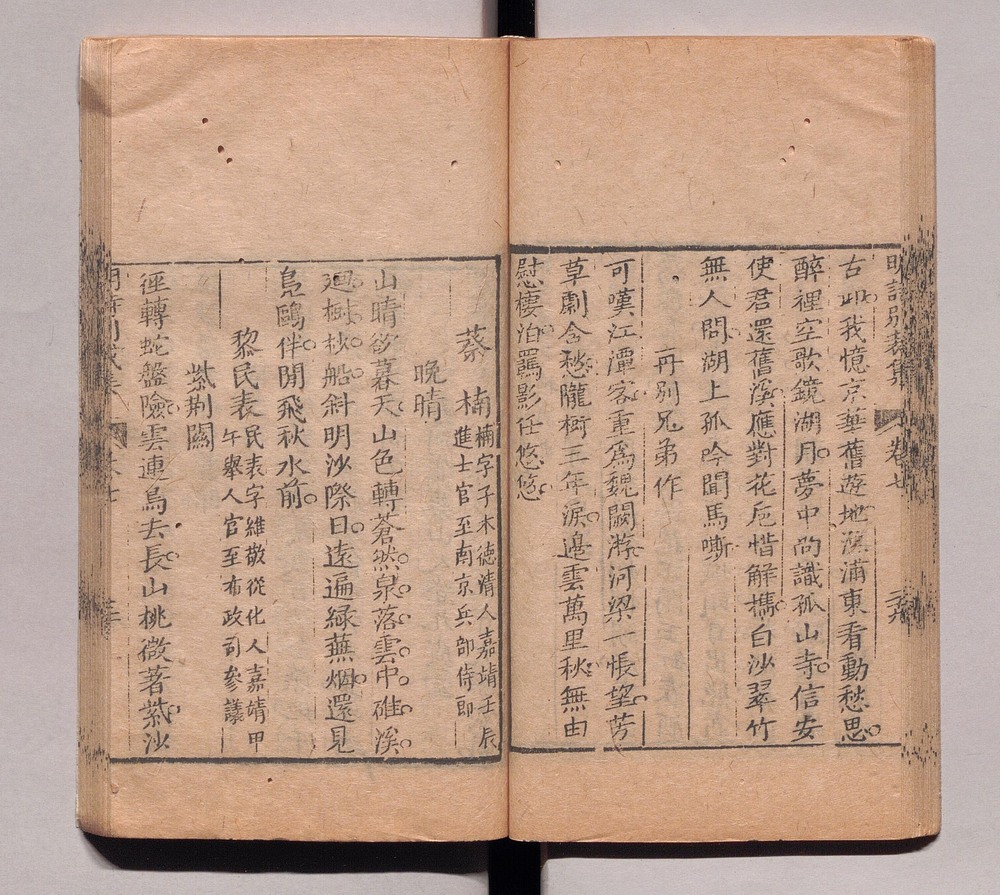 明詩別裁集 卷七
古此我憶京華舊遊地溪浦東看動愁思
醉裡空歌鏡湖月夢中尚識孤山寺信安
使君還舊溪應對花卮惜解攜白沙翠竹
無人問湖上孤吟聞馬嘶
再別兄弟作
可嘆江潭客重為魏闕游河梁一悵望芳
草劇含愁隴樹三年淚邊雲萬里秋無由
慰棲泊羈影任悠悠
蔡楠 楠字子木德清人嘉靖壬辰
進士官至南京兵部侍郎
晚晴
山晴欲暮天山色轉蒼然泉落雲中碓溪
迴樹杪船斜明沙際日遠遍綠蕪烟還見
鳧鷗伴閒飛秋水前
黎民表 民表字維敬從化人嘉靖甲
午舉人官至布政司參議
紫荊關
徑轉蛇盤險雲連鳥去長山桃微著紫沙